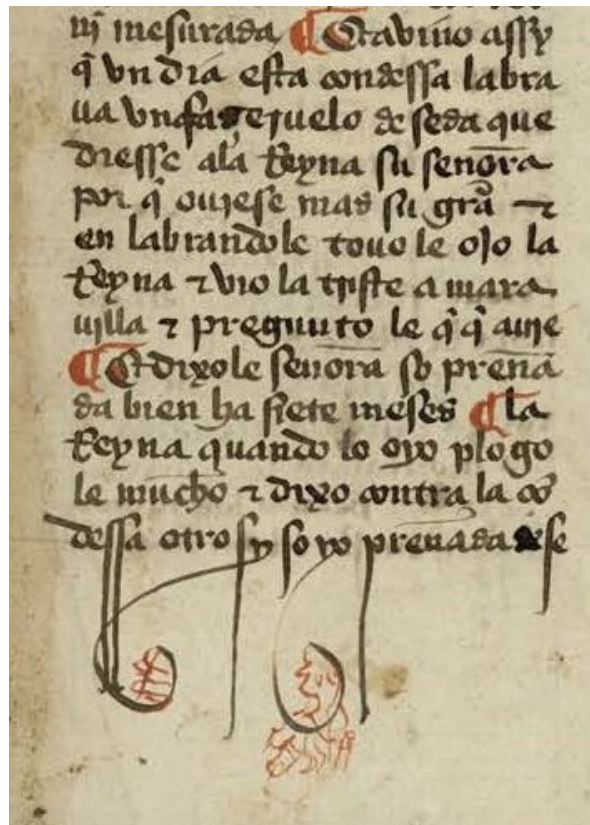 nj mesurada ¶ Et avino assy
q̃ vn dia esta condessa labra
ua vn faze juelo de seda que
diesse ala Reyna su señora
por q̃ oujese mas su grã ⁊
en labrandole touo le ojo la
Reyna ⁊ vio la triste a mara
uilla ⁊ pregunto le q̃ q̃ auie
¶ Et dixole señora so preña
da bien ha siete meses ¶ la
Reyna quando lo oyo plogo
le mucho ⁊ dixo contra la cõ
dessa otro sy so yo preñada de se